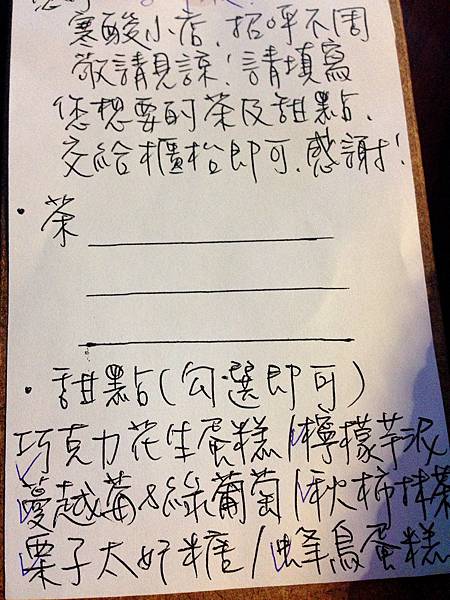 寒酸小店，招呼不周
敬請見諒！請填寫
您想要的茶及甜點、
交給櫃枱即可、感謝！
· 茶
· 甜點（勾選即可）
巧克力花生蛋糕/檸檬芋泥
蔓越莓&綠葡萄/秋柿抹茶
栗子太妃糖/蜂鳥蛋糕